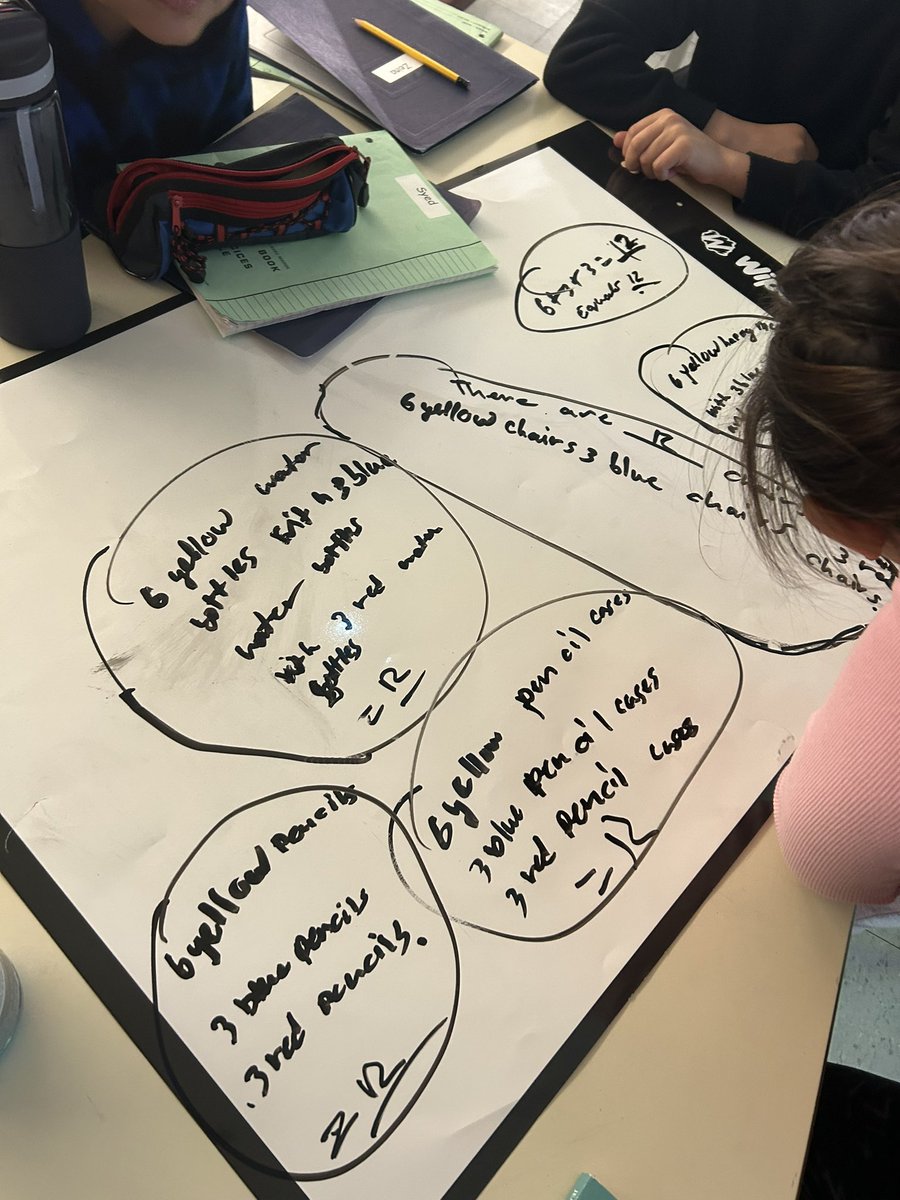 Zeno
Syed
BOOK
6+3+3=12
equals 12
6 yellow
with 3 blue
There are 12
6 yellow chairs 3 blue chairs
chairs.
6 yellow water
bottles with 3 blue
water bottles
with 3 red water
bottles
= 12
6 yellow pencil cases
3 blue pencil cases
3 red pencil cases
= 12
6 yellow pencils
3 blue pencils
3 red pencils.
= 12